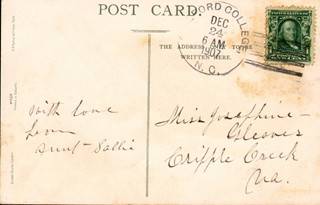 POST CARD.
FORD COLLEGE
DEC
24
6 AM
1907
N. C.
THE ADDRESS TO BE
WRITTEN HERE.
With love
from
Aunt Sallie
Miss Josephine
Gleaves
Cripple Creek
Va.